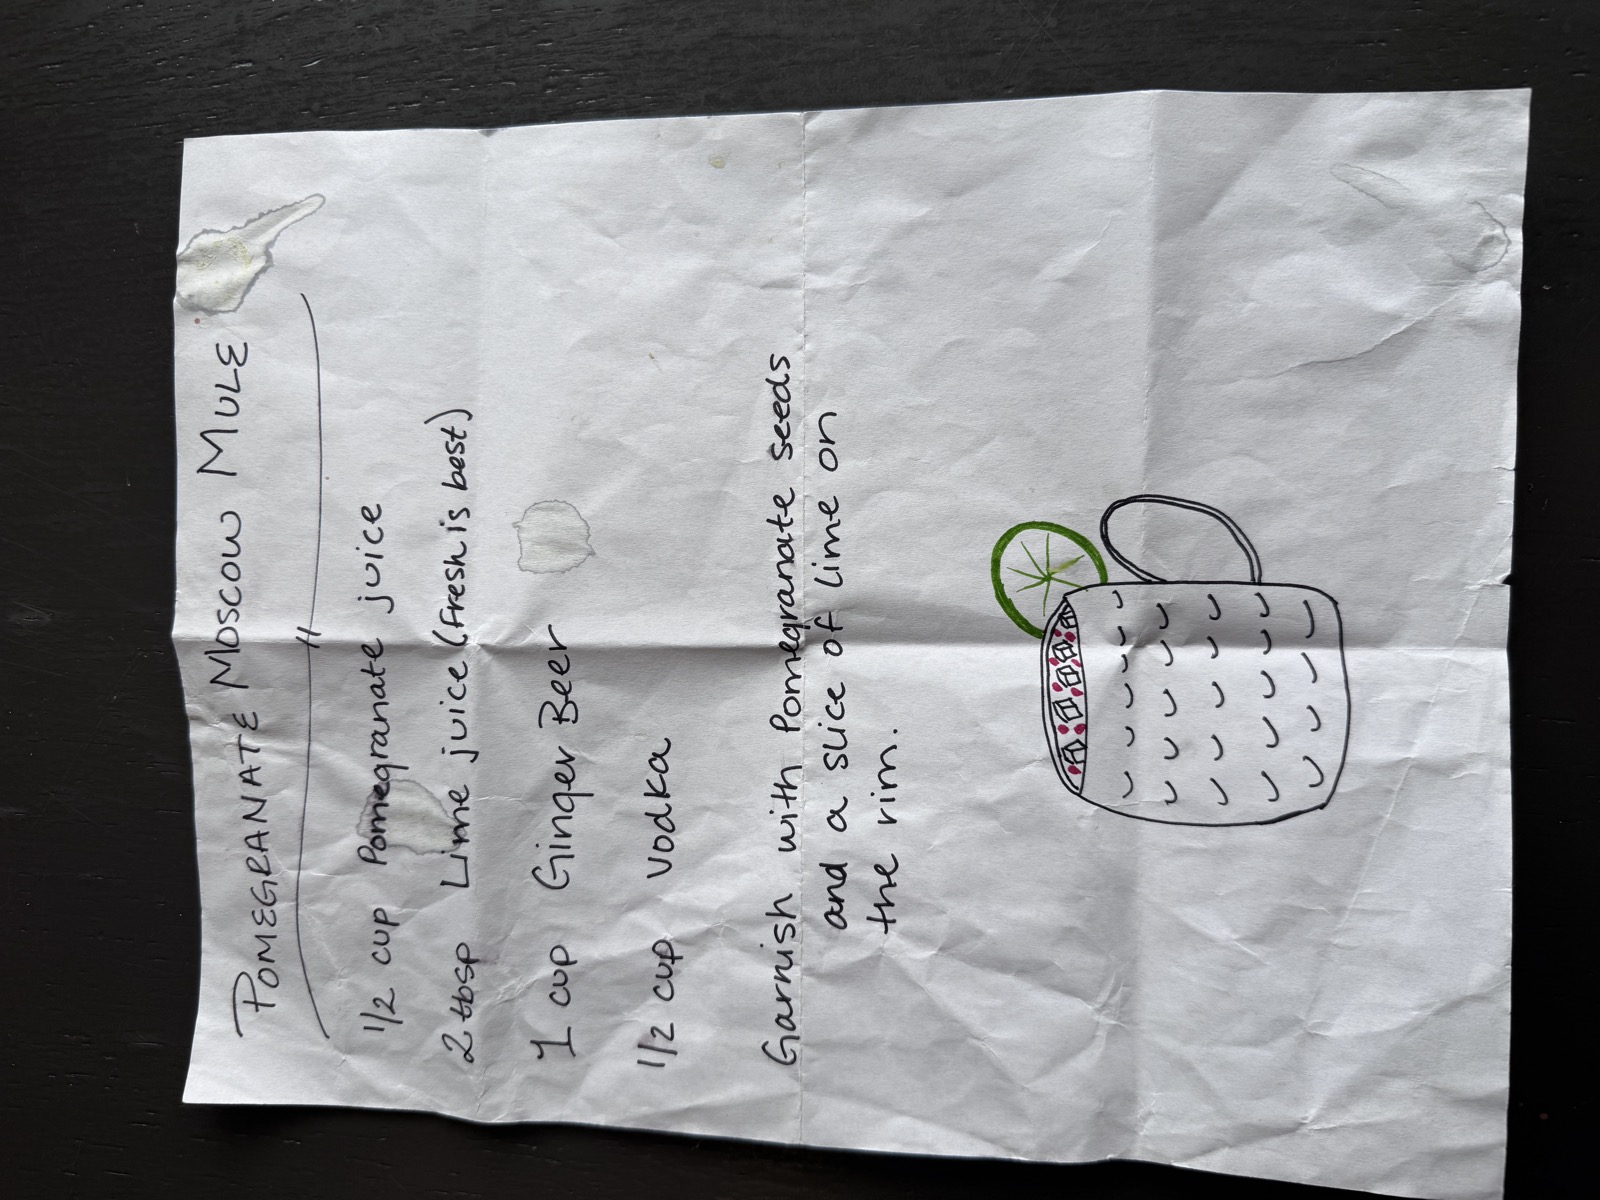 POMEGRANATE MOSCOW MULE
1/2 cup Pomegranate juice
2 tbsp Lime juice (fresh is best)
1 cup Ginger Beer
1/2 cup vodka
Garnish with Pomegranate seeds
and a slice of lime on
the rim.